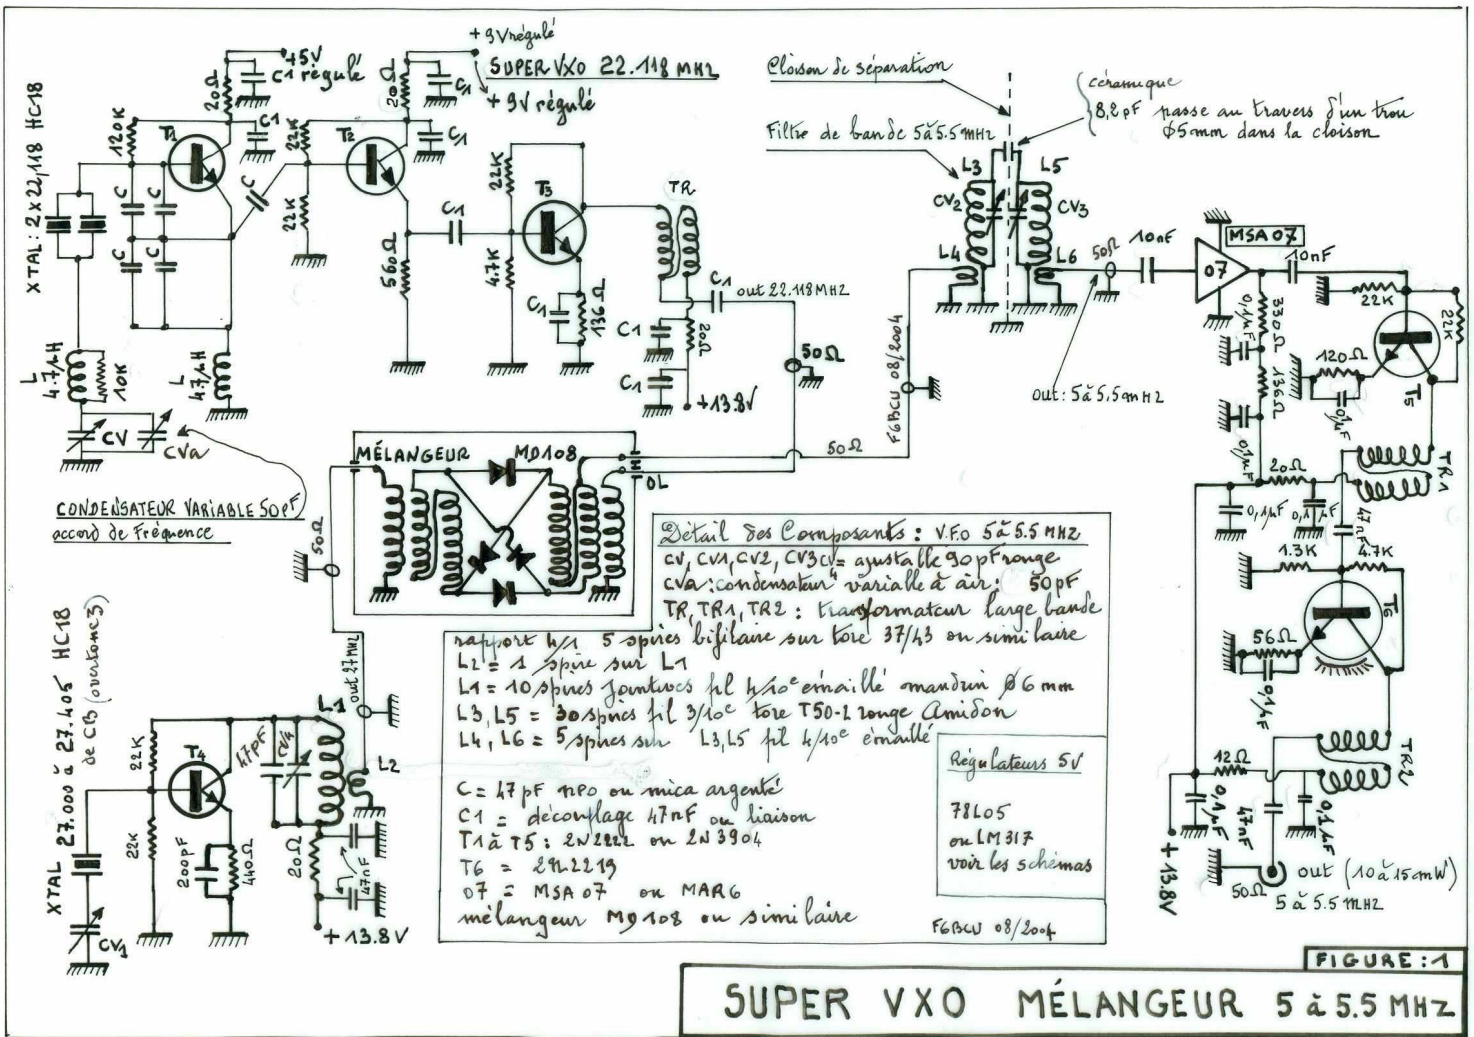 + 9V régulé
SUPER VXO 22.118 MHz
+ 9V régulé
+5V
C1 régulé
20Ω
C1
XTAL: 2 x 22,118 HC18
120K
T1
C
C
C
C
C
22K
22K
T2
20Ω
C1
C1
560Ω
C1
22K
4.7K
T3
C1
136Ω
TR
C1
out 22.118MHz
C1
50Ω
C1
+13.8V
50Ω
L
4.7µH
10K
L
4.7µH
CV
CVa
CONDENSATEUR VARIABLE 50pF
accord de fréquence
Cloison de séparation
céramique
8,2pF passe au travers d'un trou
ø5mm dans la cloison
Filtre de bande 5 à 5.5 MHz
L3
L5
CV2
CV3
L4
L6
50Ω
10nF
MSA 07
07
10nF
out: 5 à 5,5mHz
F6BCU 08/2004
50Ω
22K
22K
120Ω
0,1µF
T5
330Ω
0,1µF
136Ω
0,1µF
20Ω
0,1µF
0,1µF
TR1
47nF
1.3K
4.7K
T6
56Ω
0,1µF
TR2
12Ω
0,1µF
47nF
0,1µF
+ 13.8V
50Ω
out (10 à 15mW)
5 à 5.5 MHz
MÉLANGEUR
MD108
OL
50Ω
out 27MHz
XTAL 27.000 à 27.405 HC18
de CB (overtone3)
CV1
22K
22K
T4
200pF
440Ω
47pF
CV4
L1
L2
20Ω
47nF
+ 13.8V
Détail des Composants: V.F.O 5 à 5.5 MHz
CV, CV1, CV2, CV3 = ajustable 90pF rouge
CVa: condensateur variable à air: 50pF
TR, TR1, TR2: transformateur large bande
rapport 4/1 5 spires bifilaire sur tore 37/43 ou similaire
L2 = 1 spire sur L1
L1 = 10 spires jointives fil 4/10e émaillé mandrin ø 6 mm
L3, L5 = 30 spires fil 3/10e tore T50-2 rouge Amidon
L4, L6 = 5 spires sur L3, L5 fil 4/10e émaillé
C = 47 pF npo ou mica argenté
C1 = découplage 47nF ou liaison
T1 à T5: 2N2222 ou 2N3904
T6 = 2N2219
07 = MSA 07 ou MAR6
mélangeur MD108 ou similaire
Régulateurs 5V
78L05
ou LM317
voir les schémas
F6BCU 08/2004
FIGURE: 1
SUPER VXO MÉLANGEUR 5 à 5.5 MHz